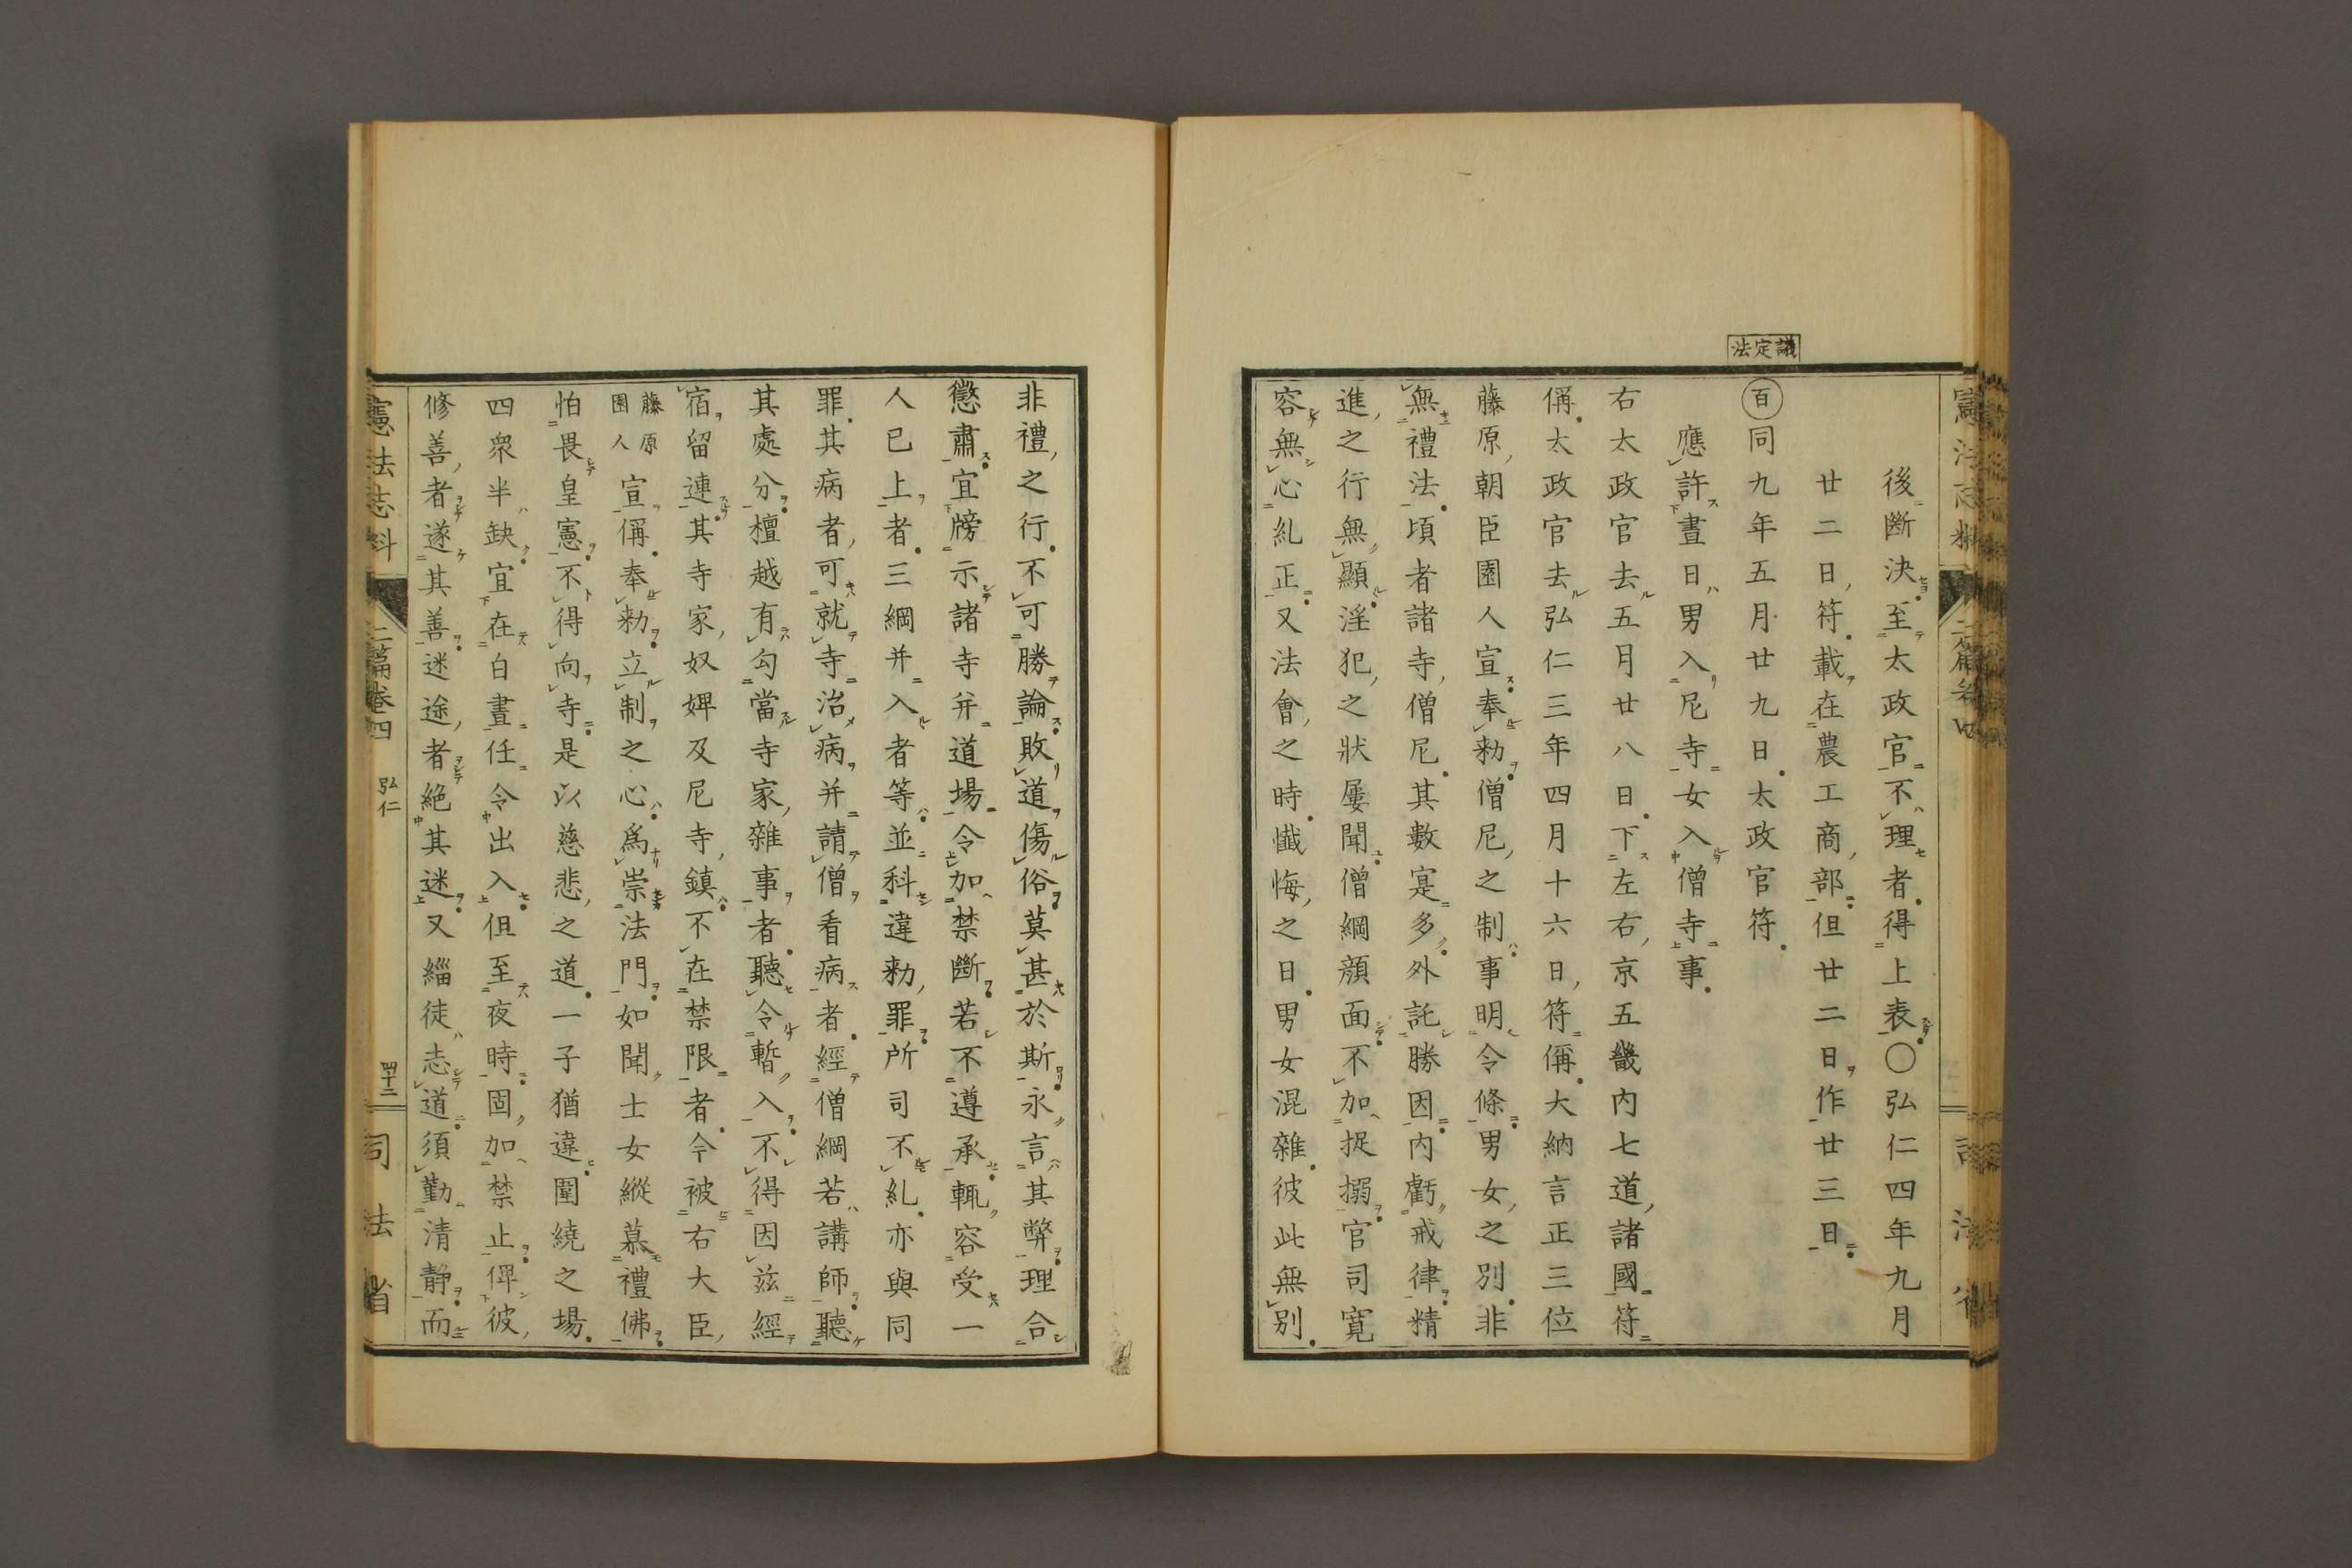 議定法
後斷決至太政官不理者得上表〇弘仁四年九月
廿二日符載在農工商部但廿二日作廿三日
百同九年五月廿九日太政官符
應許晝日男入尼寺女入僧寺事
右太政官去五月廿八日下左右京五畿内七道諸國符
偁太政官去弘仁三年四月十六日符偁大納言正三位
藤原朝臣園人宣奉勅僧尼之制事明令條男女之別非
無禮法頃者諸寺僧尼其數寔多外託勝因内虧戒律精
進之行無顯淫犯之狀屢聞僧綱顔面不加捉搦官司寛
容無心糺正又法會之時懺悔之日男女混雜彼此無別
非禮之行不可勝論敗道傷俗莫甚於斯永言其弊理合
懲肅宜牓示諸寺并道場令加禁斷若不遵承輙容受一
人已上者三綱并入者等並科違勅罪所司不糺亦與同
罪其病者可就寺治病并請僧看病者經僧綱若講師聽
其處分檀越有勾當寺家雜事者聽令暫入不得因茲經
宿留連其寺家奴婢及尼寺鎮不在禁限者今被右大臣
藤原園人宣偁奉勅立制之心爲崇法門如聞士女縱慕禮佛
怕畏皇憲不得向寺是以慈悲之道一子猶違圍繞之場
四衆半缺宜在白晝任令出入但至夜時固加禁止俾彼
修善者遂其善迷途者絶其迷又緇徒志道須勤清静而
憲法志料 二篇卷四 弘仁 四十二 司法省